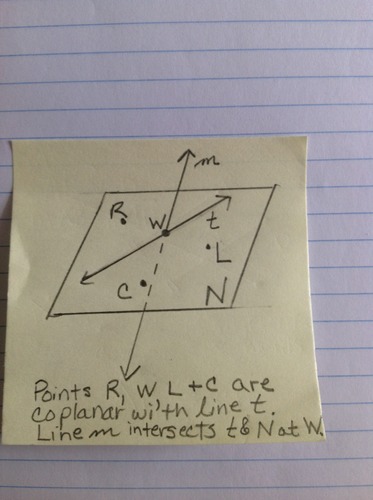 m
R
W
t
L
C
N
Points R, W L + C are
coplanar with line t.
Line m intersects t & N at W.